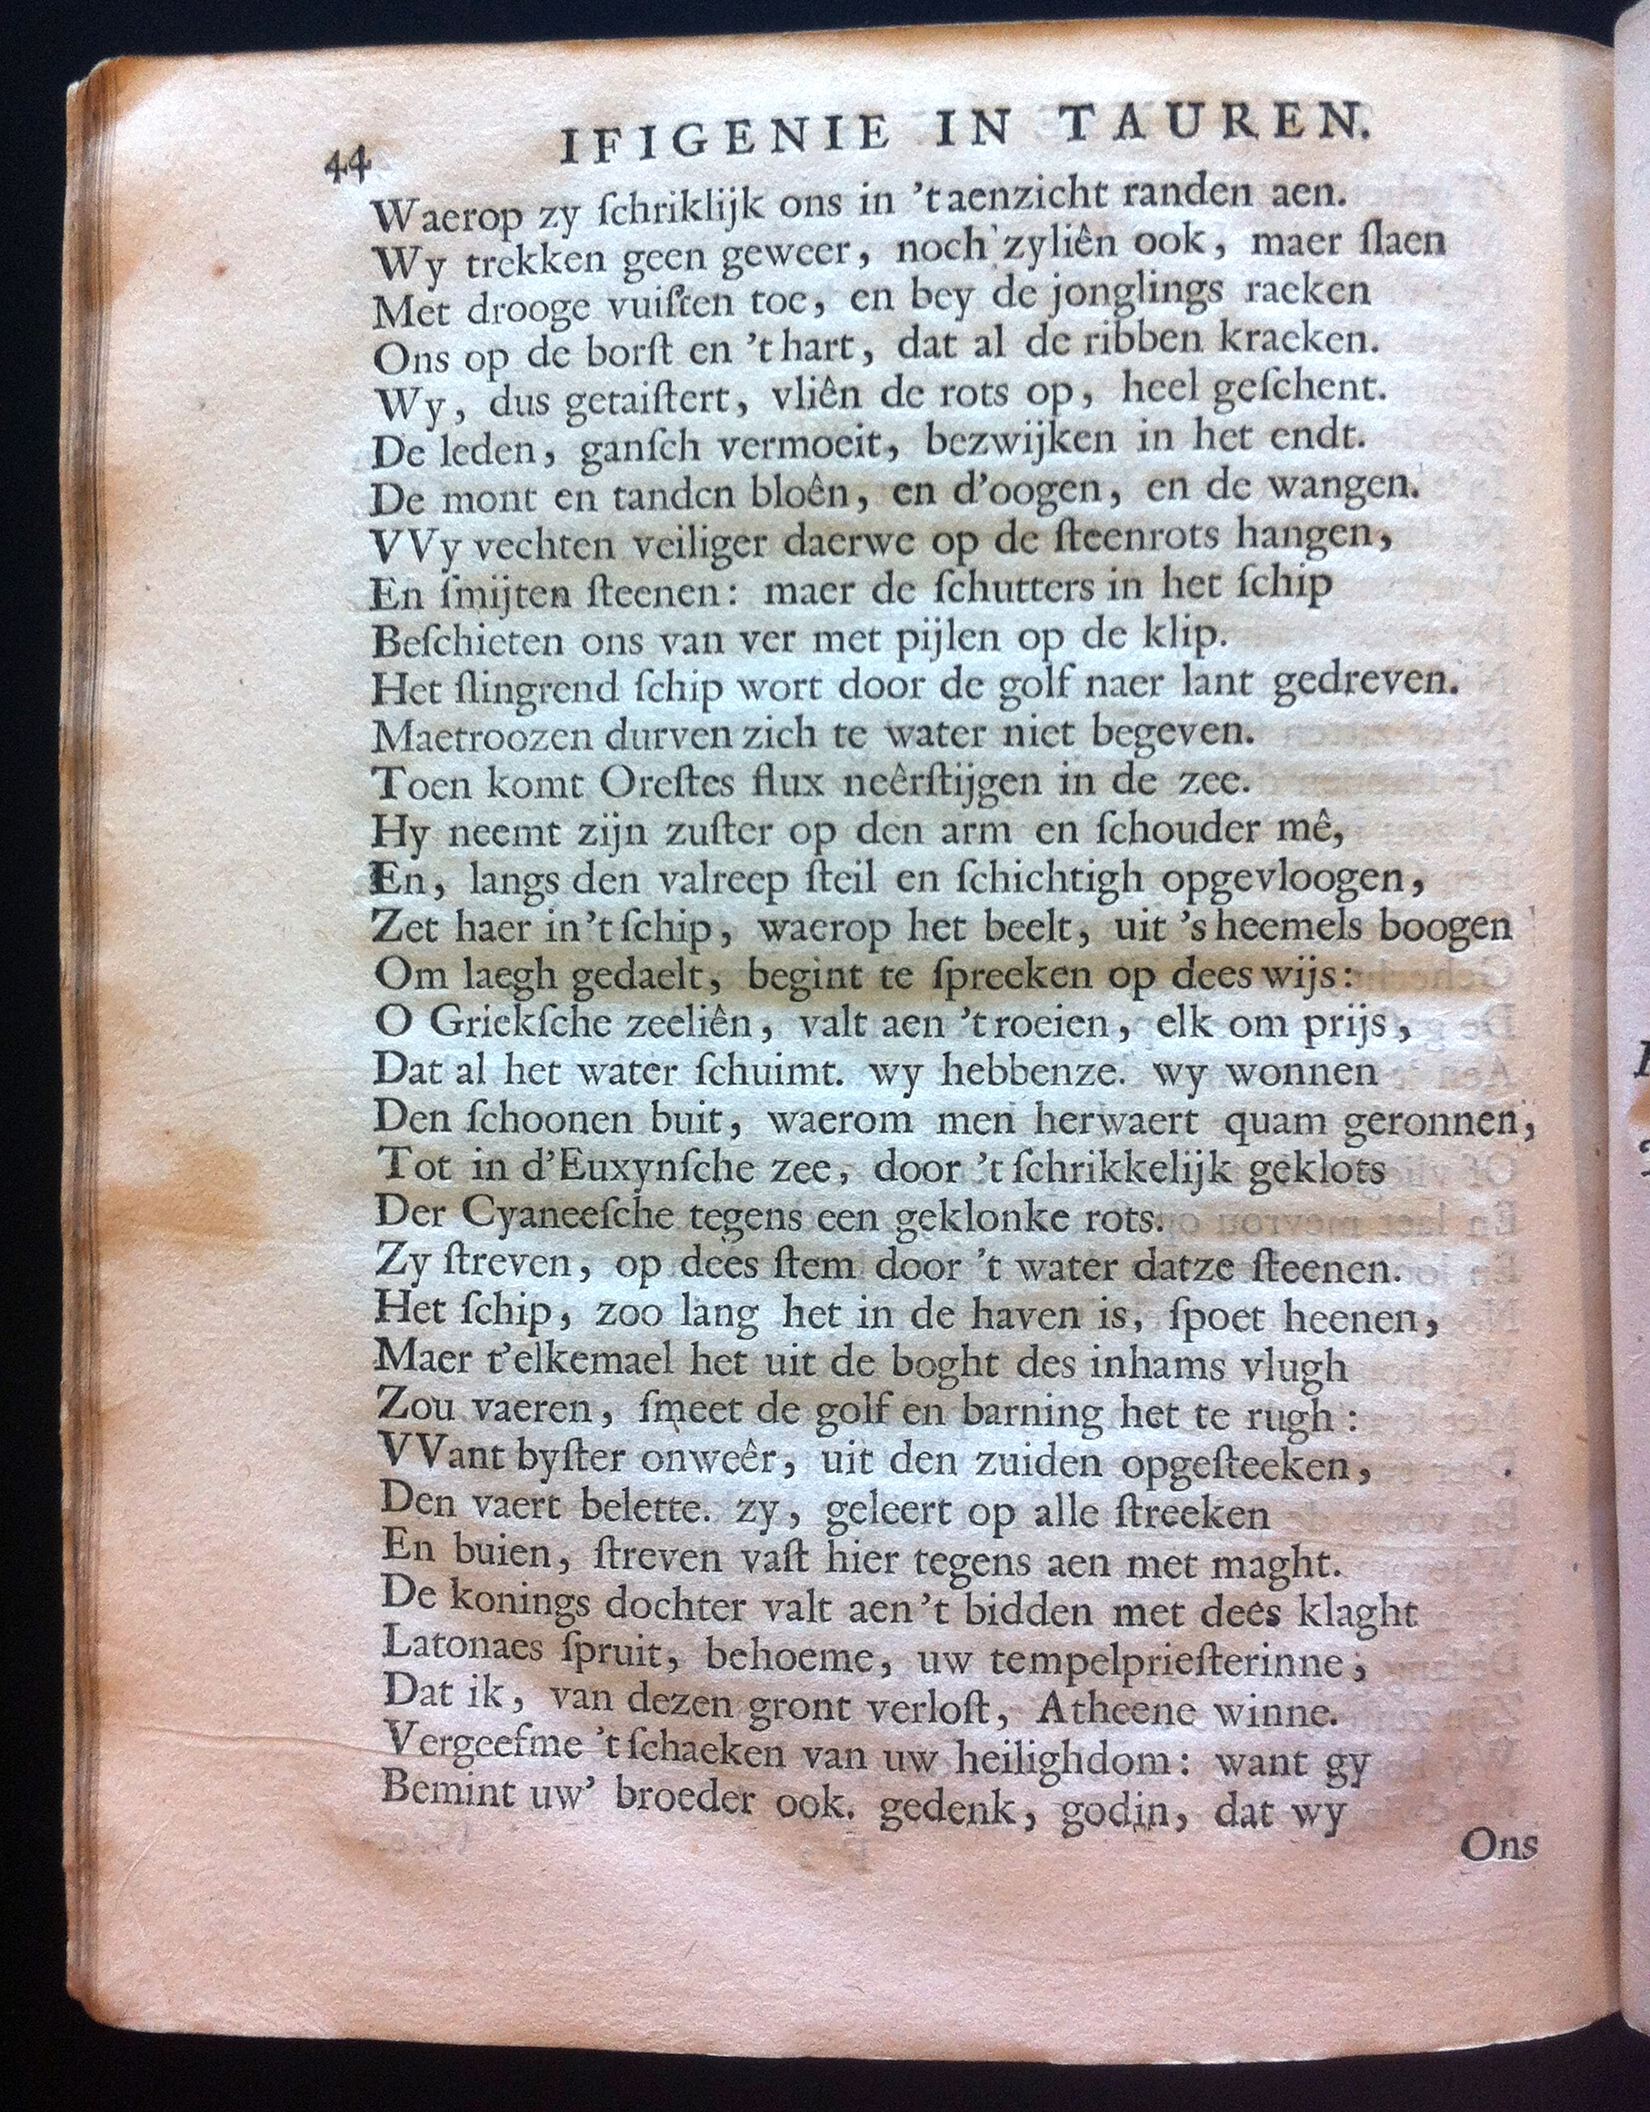 44 IFIGENIE IN TAUREN.
Waerop zy ſchriklijk ons in 't aenzicht randen aen.
Wy trekken geen geweer, noch zyliên ook, maer ſlaen
Met drooge vuiſten toe, en bey de jonglings raeken
Ons op de borſt en 't hart, dat al de ribben kraeken.
Wy, dus getaiſtert, vliên de rots op, heel geſchent.
De leden, ganſch vermoeit, bezwijken in het endt.
De mont en tanden bloên, en d'oogen, en de wangen.
VVy vechten veiliger daerwe op de ſteenrots hangen,
En ſmijten ſteenen: maer de ſchutters in het ſchip
Beſchieten ons van ver met pijlen op de klip.
Het ſlingrend ſchip wort door de golf naer lant gedreven.
Maetroozen durven zich te water niet begeven.
Toen komt Oreſtes flux neêrſtijgen in de zee.
Hy neemt zijn zuſter op den arm en ſchouder mê,
En, langs den valreep ſteil en ſchichtigh opgevloogen,
Zet haer in 't ſchip, waerop het beelt, uit 's heemels boogen
Om laegh gedaelt, begint te ſpreeken op dees wijs:
O Griekſche zeeliên, valt aen 't roeien, elk om prijs,
Dat al het water ſchuimt. wy hebbenze. wy wonnen
Den ſchoonen buit, waerom men herwaert quam geronnen,
Tot in d'Euxynſche zee, door 't ſchrikkelijk geklots
Der Cyaneeſche tegens een geklonke rots.
Zy ſtreven, op dees ſtem door 't water datze ſteenen.
Het ſchip, zoo lang het in de haven is, ſpoet heenen,
Maer t'elkemael het uit de boght des inhams vlugh
Zou vaeren, ſmeet de golf en barning het te rugh:
VVant byſter onweêr, uit den zuiden opgeſteeken,
Den vaert belette. zy, geleert op alle ſtreeken
En buien, ſtreven vaſt hier tegens aen met maght.
De konings dochter valt aen 't bidden met dees klaght
Latonaes ſpruit, behoeme, uw tempelprieſterinne,
Dat ik, van dezen gront verloſt, Atheene winne.
Vergeefme 't ſchaeken van uw heilighdom: want gy
Bemint uw' broeder ook. gedenk, godin, dat wy
Ons